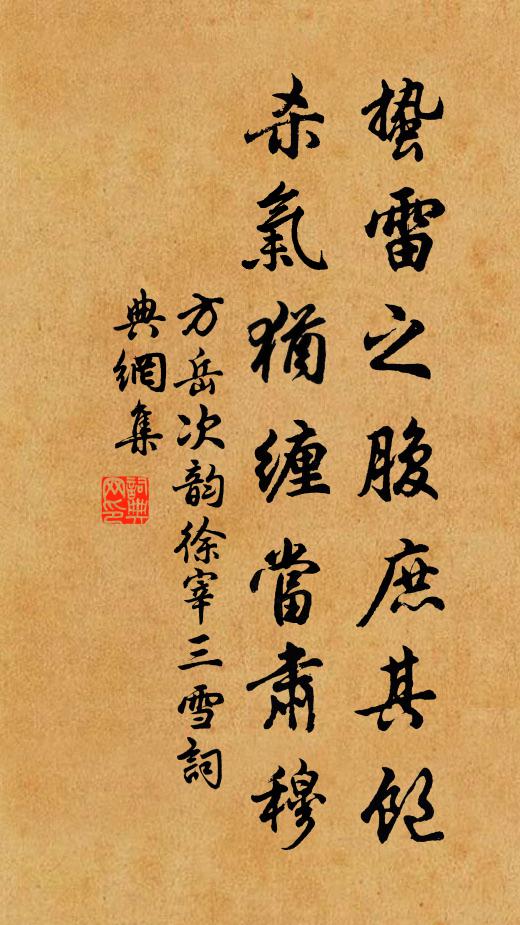 蟄雷之腹庶其飽
殺氣猶纏當肅穆
方岳次韵徐宰三雪詞
典網集
詞典網印